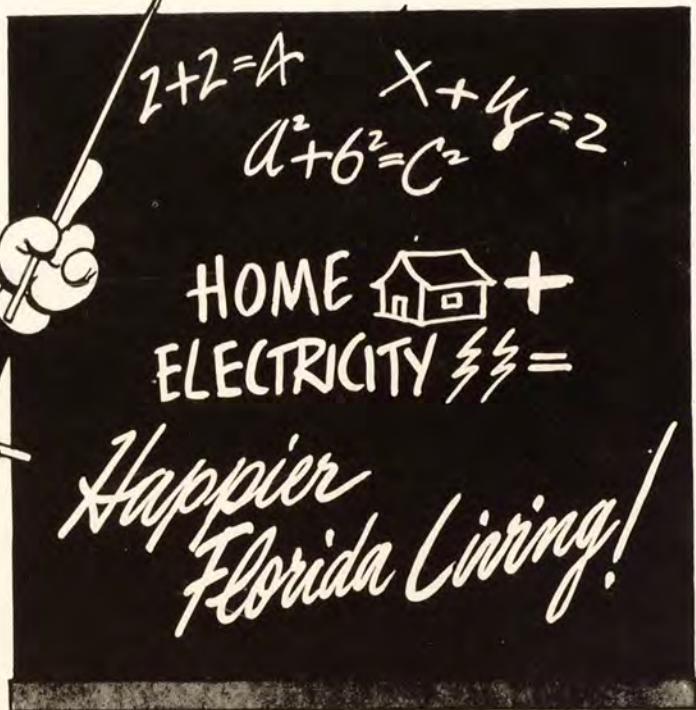 2+2=4 X+y=2
a²+b²=c²
HOME +
ELECTRICITY =
Happier
Florida Living!